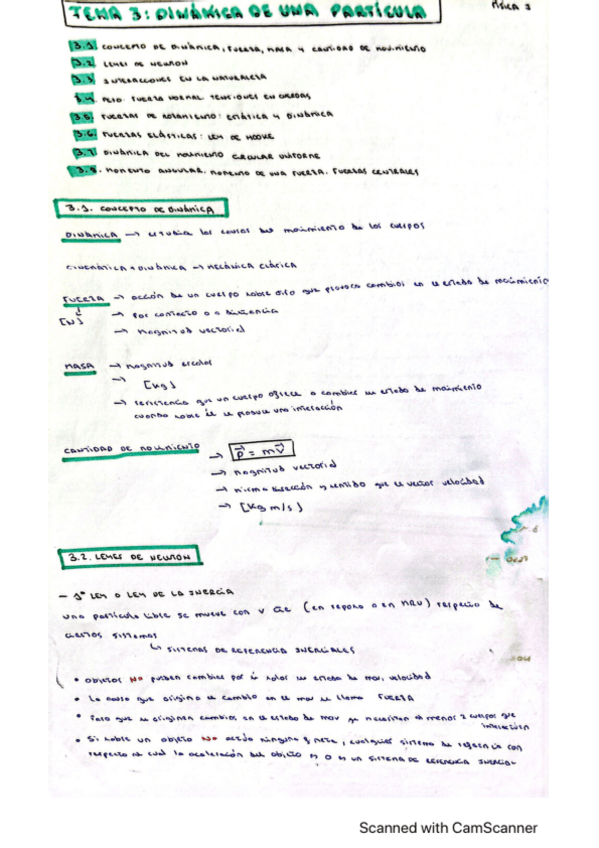 TEMA 3: DINÁMICA DE UNA PARTÍCULA
FÍSICA 1
3.1. CONCEPTO DE DINÁMICA, FUERZA, MASA Y CANTIDAD DE MOVIMIENTO
3.2. LEYES DE NEWTON
3.3. INTERACCIONES EN LA NATURALEZA
3.4. PESO. FUERZA NORMAL. TENSIONES EN CUERDAS
3.5. FUERZAS DE ROZAMIENTO: ESTÁTICA Y DINÁMICA
3.6. FUERZAS ELÁSTICAS: LEY DE HOOKE
3.7. DINÁMICA DEL MOVIMIENTO CIRCULAR UNIFORME
3.8. MOMENTO ANGULAR. MOMENTO DE UNA FUERZA. FUERZAS CENTRALES
3.1. CONCEPTO DE DINÁMICA
DINÁMICA → estudia las causas del movimiento de los cuerpos
CINEMÁTICA + DINÁMICA → MECÁNICA CLÁSICA
FUERZA → acción de un cuerpo sobre otro que provoca cambios en el estado de movimiento
[N] → Por contacto o a distancia
→ Magnitud vectorial
MASA → Magnitud escalar
→ [kg]
→ resistencia que un cuerpo ofrece a cambiar su estado de movimiento
cuando sobre él se produce una interacción
CANTIDAD DE MOVIMIENTO → p⃗ = mv⃗
→ Magnitud vectorial
→ misma dirección y sentido que el vector velocidad
→ [kg m/s]
3.2. LEYES DE NEWTON
- 1ª LEY O LEY DE LA INERCIA
Una partícula libre se mueve con v cte (en reposo o en MRU) respecto de
ciertos sistemas
↳ SISTEMAS DE REFERENCIA INERCIALES
• Objetos NO pueden cambiar por sí solos su estado de mov, velocidad
• La causa que origina el cambio en el mov se llama FUERZA
• Para que se originen cambios en el estado de mov se necesitan al menos 2 cuerpos que
interactúen
• Si sobre un objeto NO actúa ninguna F neta, cualquier sistema de referencia con
respecto al cual la aceleración del objeto es 0 es un SISTEMA DE REFERENCIA INERCIAL
Scanned with CamScanner